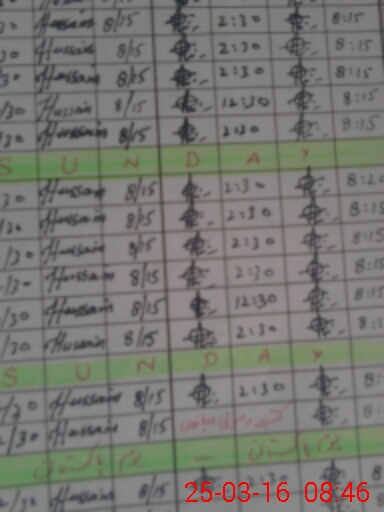 Hussain 8/15 2:30 8:15
30 Hussain 8/15 2:30 8:15
30 Hussain 8/15 2:30 8:15
/30 Hussain 8/15 12:30 8:15
30 Hussain 8/15 2:30 8:15
S U N D A Y
30 Hussain 8/15 2:30 8:20
/30 Hussain 8/15 2:30 8:15
/30 Hussain 8/15 2:30 8:15
/30 Hussain 8/15 2:30 8:15
/30 Hussain 8/15 12:30 8:15
/30 Hussain 8/15 2:30 8:1
S U N D A Y
/30 Hussain 8/15 2:30 8:
2/30 Hussain 8/15 8:
یوم پاکستان — یوم پاکستان
2/30 Hussain 8/15 2:30 8
25-03-16 08:46